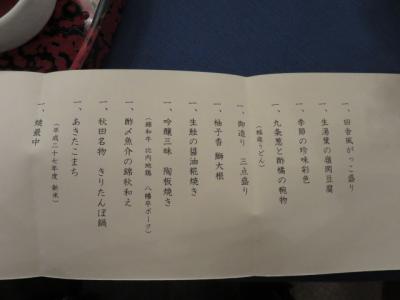 一、田舎風がっこ盛り
一、生湯葉の嶺岡豆腐
一、季節の珍味彩色
一、九条葱と酢橘の椀物
(稲庭うどん)
一、御造り 三点盛り
一、柚子香 鰤大根
一、生鮭の醤油糀焼き
一、吟醸三昧 陶板焼き
(錦和牛 比内地鶏 八幡平ポーク)
一、酢〆魚介の錦秋和え
一、秋田名物 きりたんぽ鍋
一、あきたこまち
(平成二十七年度 新米)
一、焼最中